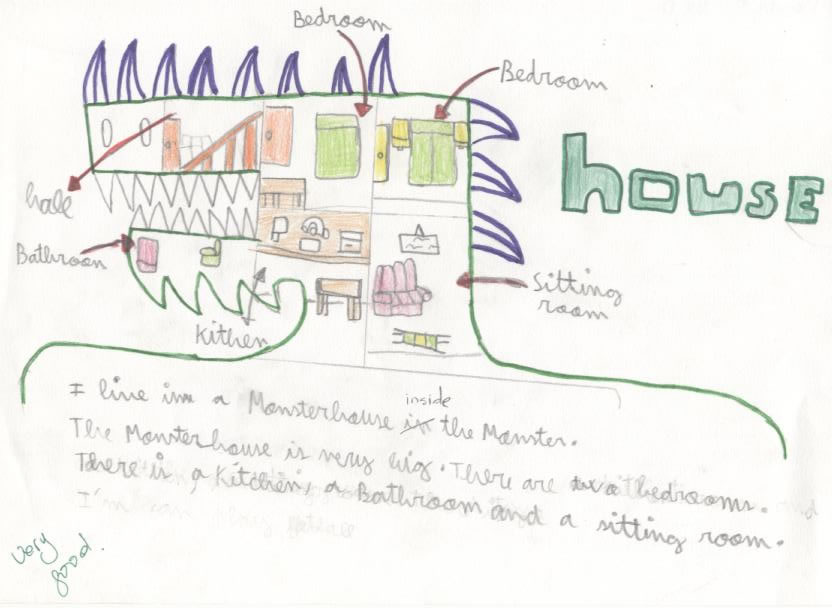 Bedroom
Bedroom
house
hall
Bathroom
Sitting
room
Kithen
I live in a Monsterhouse inside the Monster.
The Monsterhouse is very big. There are two bedrooms.
There is a Kitchen, a Bathroom and a sitting room.
very
good.